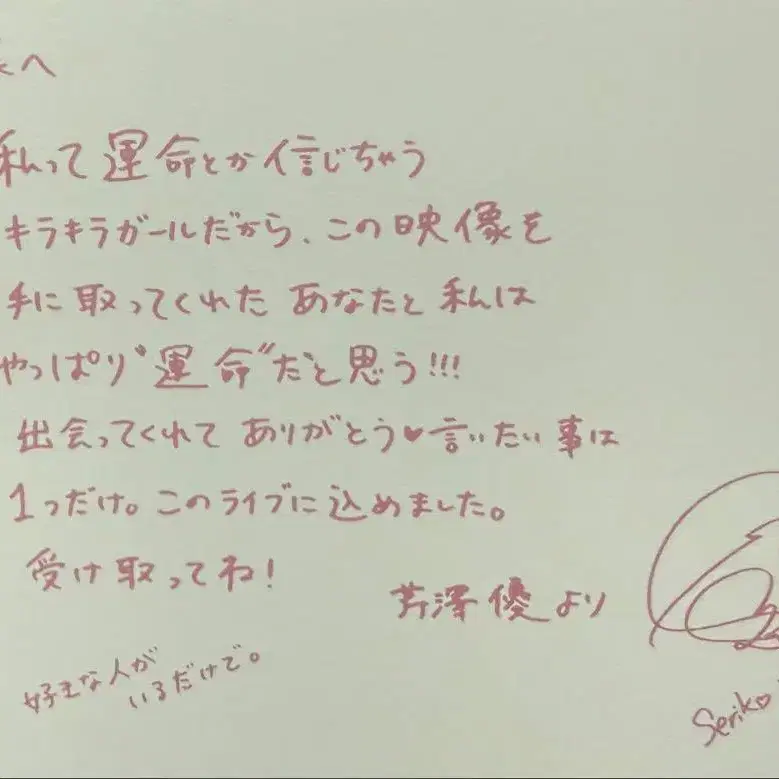 へ
私って運命とか信じちゃう
キラキラガールだから、この映像を
手に取ってくれた あなたと 私は
やっぱり"運命"だと思う!!!
出会ってくれて ありがとう♥言いたい事は
1つだけ。このライブに込めました。
受け取ってね!
芹澤優より
好きな人が
いるだけで。
Seriko♡